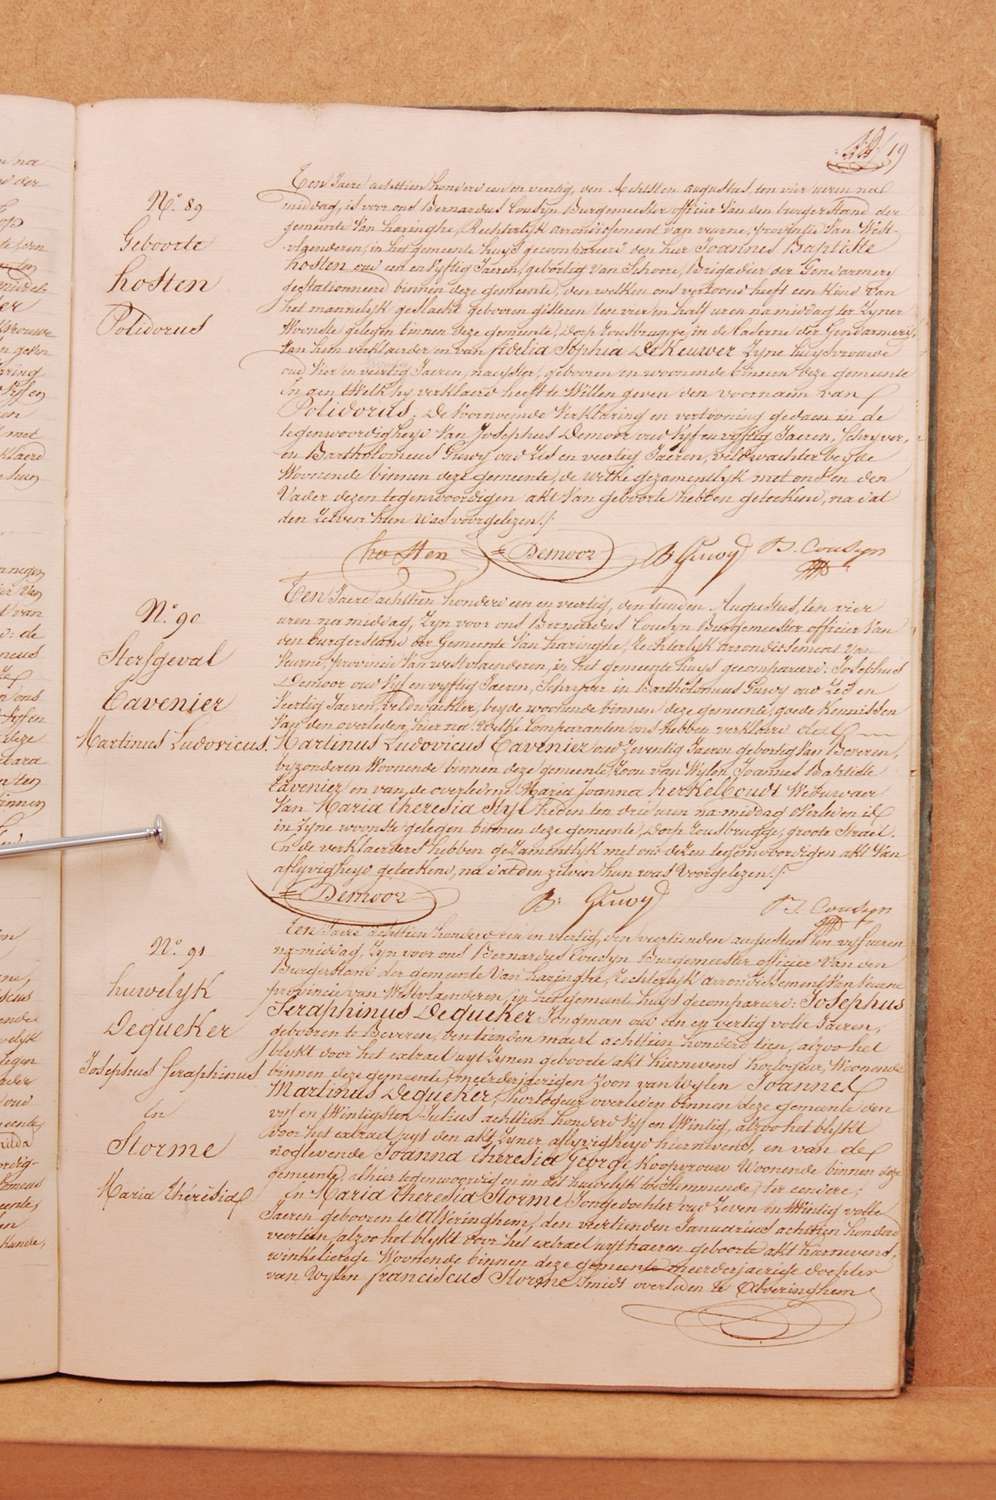 19
N.º 89
Geboorte
hosten
Polidorus
Ten Jaere achttien honderd een en veertig, den Achtsten augustus ten vier uren na
middag, is voor ons Bernardus Cousyn Burgemeester officier van den burgerstand der
gemeente Van haringhe, Rechterlyk arrondissement van veurne, provintie van West-
vlaenderen, in het gemeente huys gecompareerd den heer Joannes Baptiste
hosten oud een en vyftig Jaeren, gebortig van, Brigadier der Gendarmery
gestationneerd binnen deze gemeente, den welken ons vertoond heeft een kind van
het mannelyk geslacht geboren gisteren ten vier en half uren na middag ter Zyner
Woonste gelegen binnen deze gemeente, Dorp rousbrugge, in de Caserne der Gendarmery,
Van hem verklaerder en van fidelia Sophia DeKeuwer Zyne huysvrouwe
oud vier en veertig Jaeren, naeyster, gebooren en woonende binnen deze gemeente
En aen Welk hy verklaerd heeft te Willen geven den voornaem van
Polidorus. De Voornoemde Verklaring en vertooning gedaen in de
tegenwoordigheyd Van Josephus Demoor oud Vyf en vyftig Jaeren, Schryver,
en Bartholomeus Guwy oud Zes en veertig Jaeren, veldwachter beyde
Woonende binnen deze gemeente, de welke gezamentlyk met ons en den
Vader dezen tegenwoordigen akt Van geboorte hebben geteekend, na dat
den Zelven hun Was voorgelezen./.
hosten Demoor B Guwy B. Cousyn
N.º 90
Sterfgeval
Cavenier
Martinus Ludovicus
Ten Jaere achttien honderd een en veertig, den tienden Augustus, ten vier
uren na middag, Zyn voor ons Bernardus Cousyn Burgemeester officier Van
den burgerstand der Gemeente Van haringhe, Rechterlyk arrondissement Van
Veurne, provincie Van westvlaenderen, in het gemeente huys gecompareerd: Josephus
Demoor oud Vyf en vyftig Jaeren, Schryver en Bartholomeus Guwy oud Zes en
Veertig Jaeren, veldwachter, beyde woonende binnen deze gemeente, goede Kennissen
Van den overleden, hier na: Welke Comparanten ons hebben verklaerd dat
Martinus Ludovicus Cavenier oud Zeventig Jaeren gebortig Van Beveren,
byzonderen Woonende binnen deze gemeente, Zoon van Wylen Joannes Baptiste
Cavenier en van de overledene Maria Joanna herkelboudt Weduwaer
Van Maria theresia Styl heden ten drie uren na middag overleden is
in Zyne woonste gelegen binnen deze gemeente, Dorp rousbrugge, groote Straet.
En de verklaerders hebben gezamentlyk met ons dezen tegenwoordigen akt Van
aflyvigheyd geteekend, na dat den zelven hun was Voorgelezen./.
Demoor B: Guwy B. Cousyn
N.º 91
huwelyk
DeQueker
Josephus Seraphinus
En
Storme
Maria thérésia
Ten Jaere achttien honderd een en veertig, den veertienden augustus ten vyf uren
na middag, Zyn voor ons Bernardus Cousyn Burgemeester officier Van den
Burgerstand der gemeente Van haringhe, Rechterlyk arrondissement Van Veurne
provincie van Westvlaenderen, in het gemeente huys gecompareerd: Josephus
Seraphinus DeQueker Jongman oud een en dertig volle Jaeren,
gebooren te Beveren, den tienden maert achttien honderd tien, alzoo het
blykt voor het extract uyt Zynen geboorte akt hiernevens, horlogeur, Woonende
binnen deze gemeente, meerderjaerigen Zoon van Wylen Joannes
Martinus Dequeker, horlogeur overleden binnen deze gemeente den
vyf en twintigsten Julius achttien honderd Vyf en twintig, alzoo het blykt
voor het extract uyt den akt Zyner aflyvigheyd hiernevens, en van de
noglevende Joanna theresia George Koopvrouw Woonende binnen deze
gemeente, alhier tegenwoordig en in dit huwelyk toestemmende, ter eendere,
en Maria theresia Storme Jongedochter oud Zeven en twintig volle
Jaeren gebooren te Alveringhem, den viertienden Januarius achttien honderd
veertien, alzoo het blykt voor het extract uyt haeren geboorte akt hiernevens,
winkelierege Woonende binnen deze gemeente meerderjaerige dochter
van Wylen franciscus Storme Smidt overleden te Alveringhem